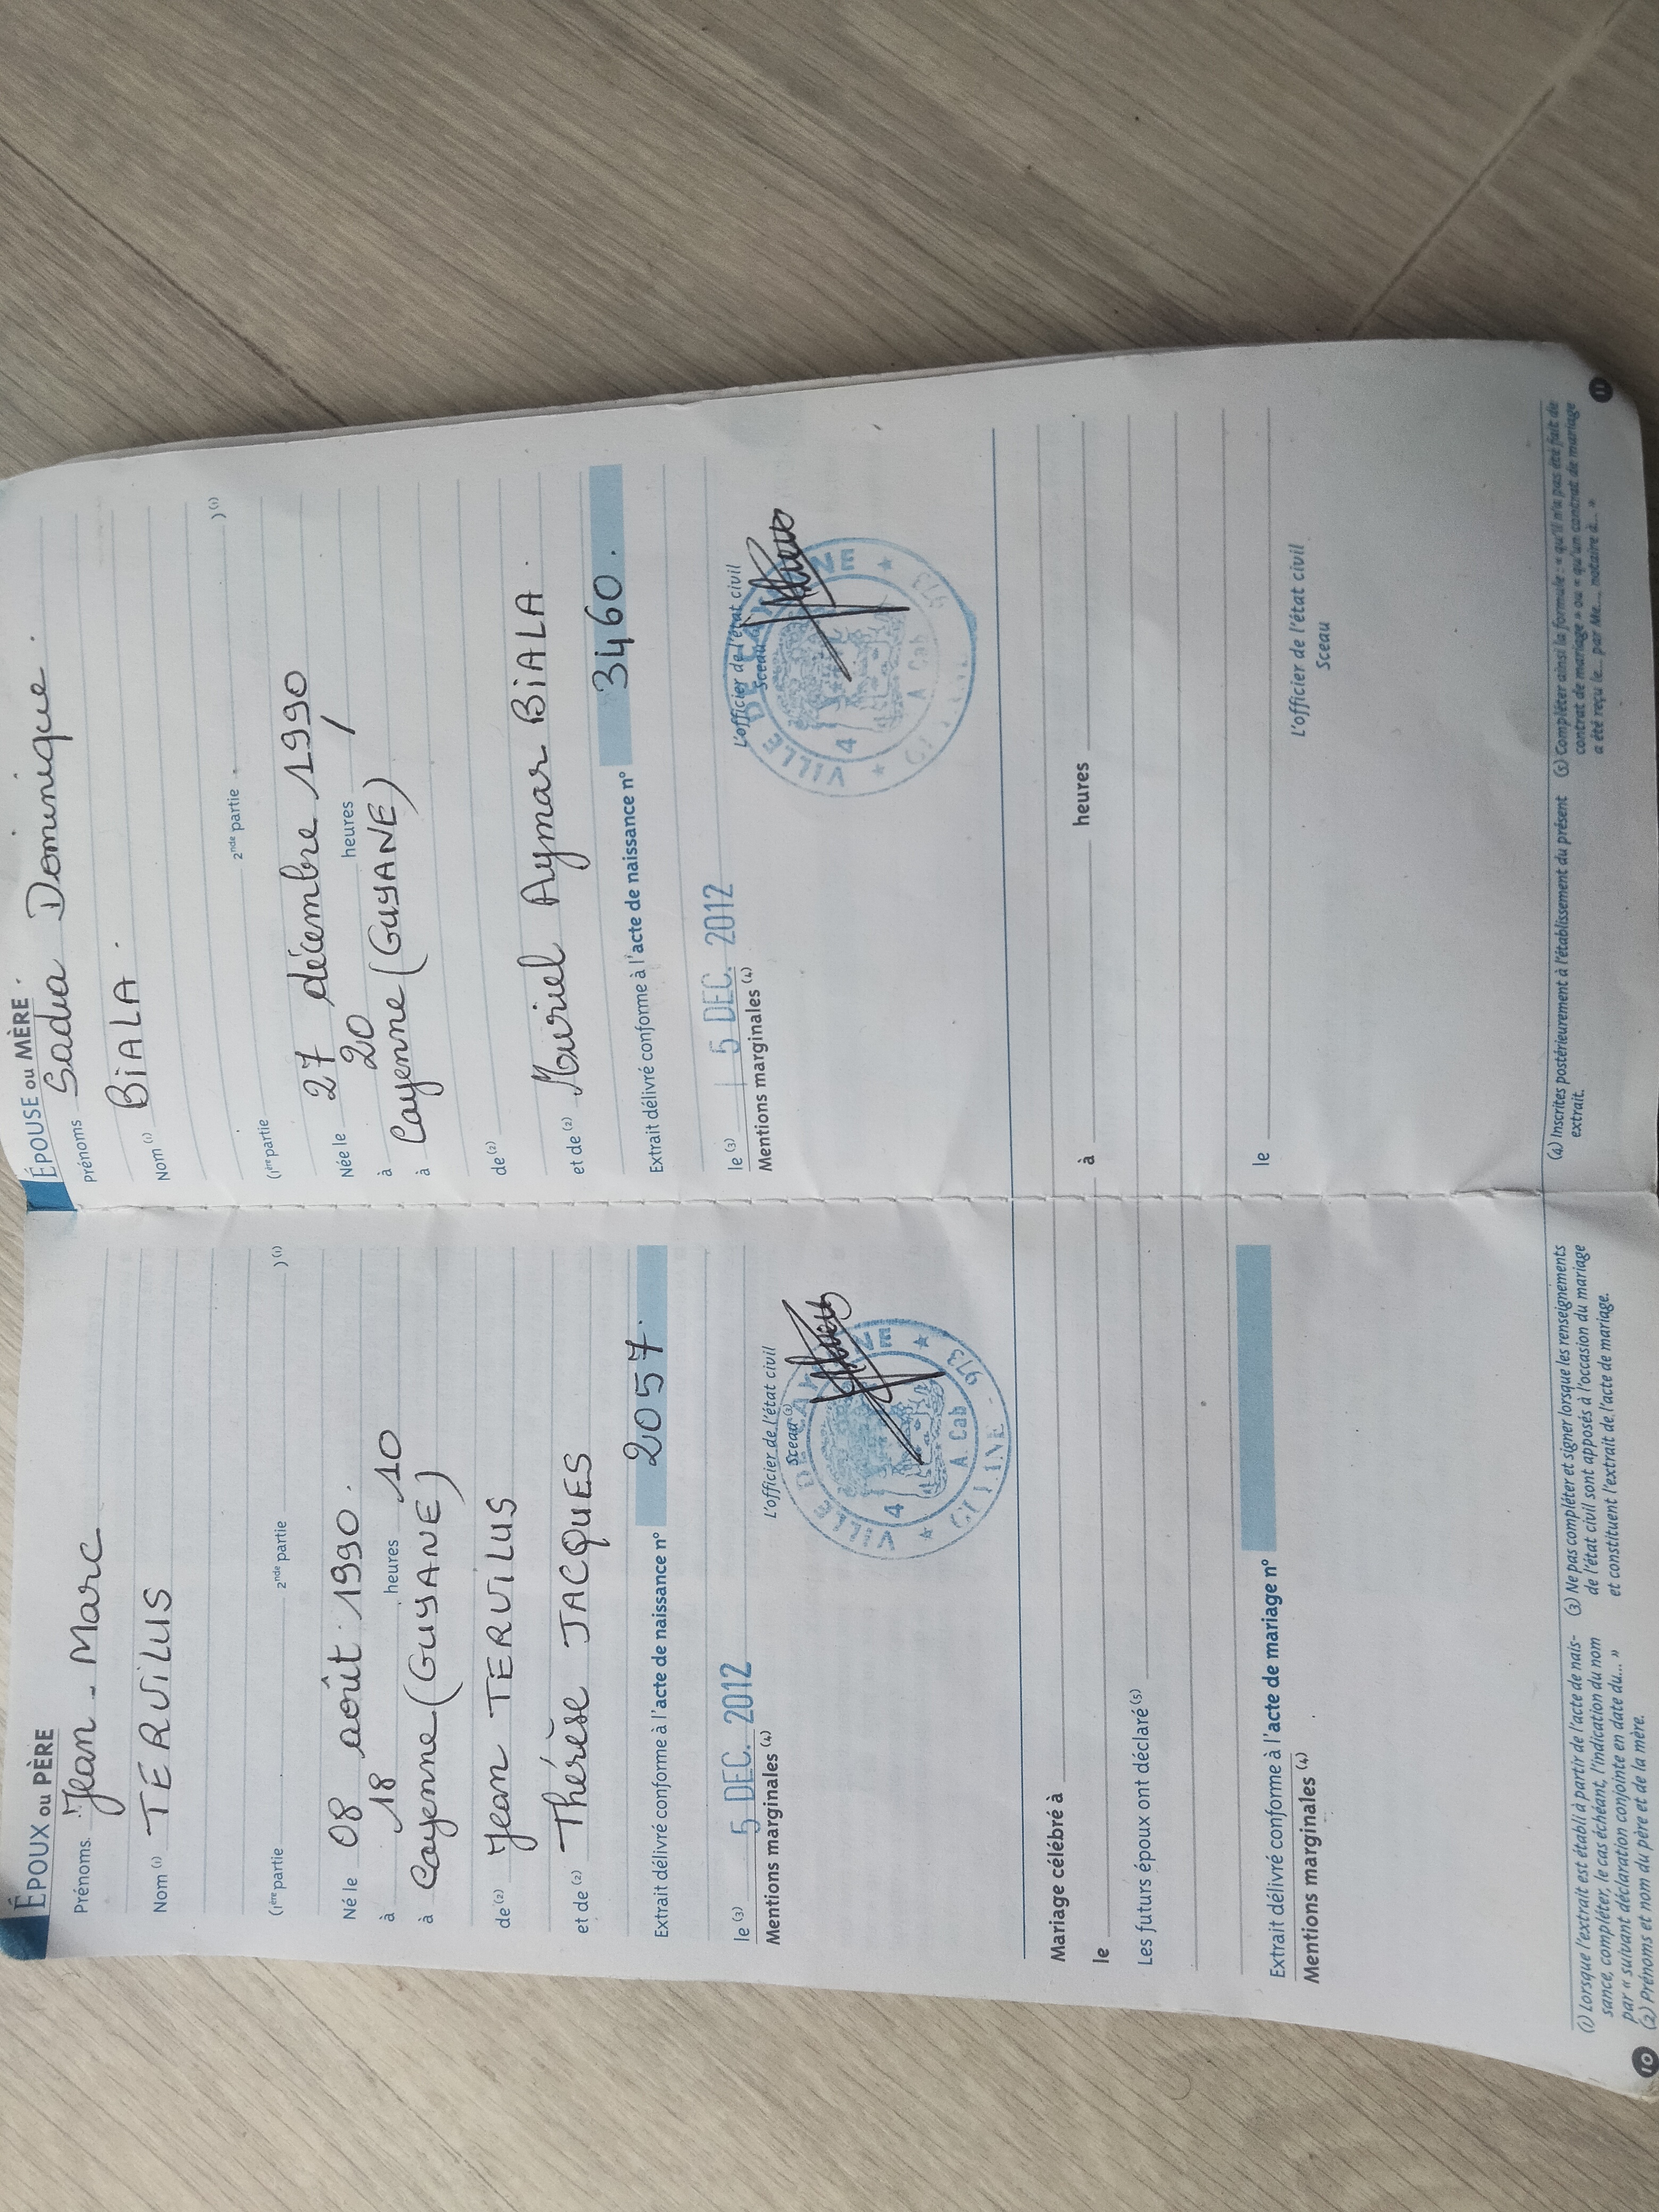 ÉPOUX ou PÈRE
Prénoms Jean-Marc
Nom (1) TERVILUS
(1ère partie 2nde partie ) (1)
Né le 08 août 1990.
à 18 heures 10
à Cayenne (GUYANE)
de (2) Jean TERVILUS
et de (2) Thérèse JACQUES
Extrait délivré conforme à l'acte de naissance n° 2057.
le (3) 5 DEC. 2012
Mentions marginales (4)
L'officier de l'état civil
Sceau (3)
VILLE DE CAYENNE
4
A. Cab
GUYANE - 973
ÉPOUSE ou MÈRE
Prénoms Sadia Dominique.
Nom (1) BiALA.
(1ère partie 2nde partie ) (1)
Née le 27 décembre 1990
à 20 heures /
à Cayenne (GUYANE)
de (2)
et de (2) Muriel Aymar BiALA.
Extrait délivré conforme à l'acte de naissance n° 3460.
le (3) 15 DEC. 2012
Mentions marginales (4)
L'officier de l'état civil
Sceau
VILLE DE CAYENNE
4
A Cab
973
Mariage célébré à
le à heures
Les futurs époux ont déclaré (5)
Extrait délivré conforme à l'acte de mariage n° le
Mentions marginales (4)
L'officier de l'état civil
Sceau
(1) Lorsque l'extrait est établi à partir de l'acte de nais-
sance, compléter, le cas échéant, l'indication du nom
par « suivant déclaration conjointe en date du... »
(2) Prénoms et nom du père et de la mère.
(3) Ne pas compléter et signer lorsque les renseignements
de l'état civil sont apposés à l'occasion du mariage
et constituent l'extrait de l'acte de mariage.
10
(4) Inscrites postérieurement à l'établissement du présent
extrait.
(5) Compléter ainsi la formule : « qu'il n'a pas été fait de
contrat de mariage » ou « qu'un contrat de mariage
a été reçu le... par Me..., notaire à... »
11